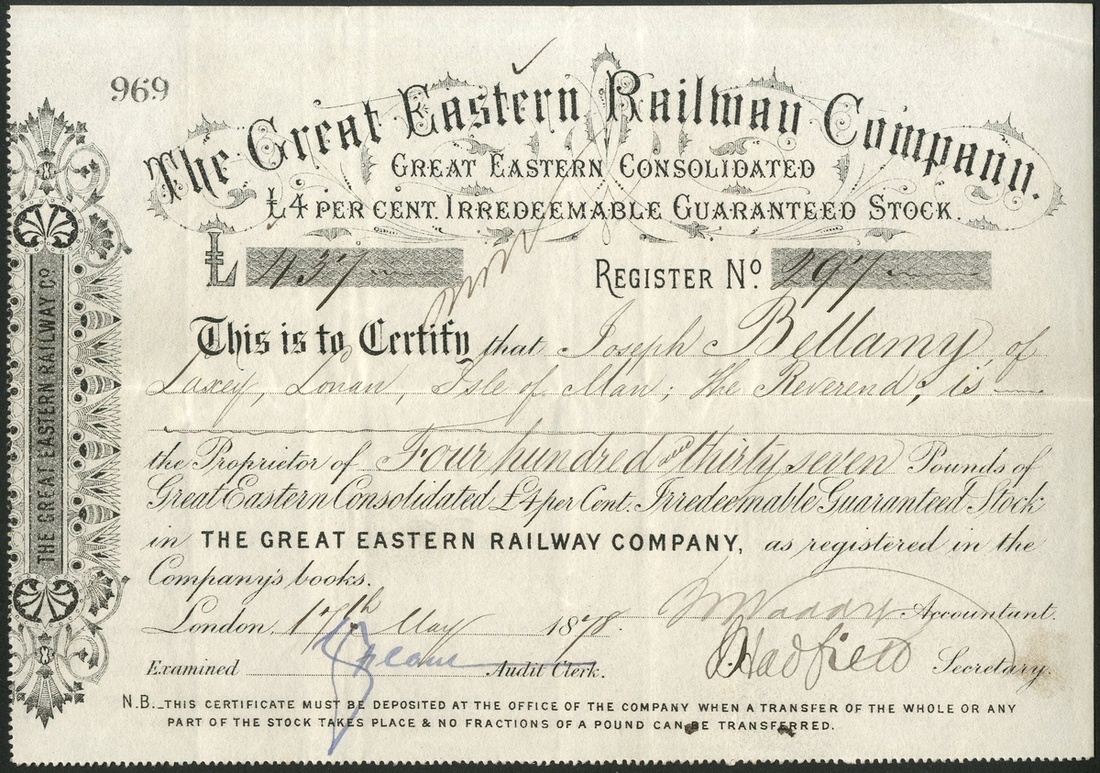 969
The Great Eastern Railway Company.
GREAT EASTERN CONSOLIDATED
£4 PER CENT. IRREDEEMABLE GUARANTEED STOCK.
£ 437 REGISTER Nº 297
This is to Certify that Joseph Bellamy, of
Laxey, Lonan, Isle of Man; The Reverend, is
the Proprietor of Four hundred and thirty seven Pounds of
Great Eastern Consolidated £4 per Cent. Irredeemable Guaranteed Stock
in THE GREAT EASTERN RAILWAY COMPANY, as registered in the
Company's books.
London, 17th May 1878. Accountant.
Hadfield Secretary.
Examined Audit Clerk.
N.B._THIS CERTIFICATE MUST BE DEPOSITED AT THE OFFICE OF THE COMPANY WHEN A TRANSFER OF THE WHOLE OR ANY
PART OF THE STOCK TAKES PLACE & NO FRACTIONS OF A POUND CAN BE TRANSFERRED.
THE GREAT EASTERN RAILWAY Cº